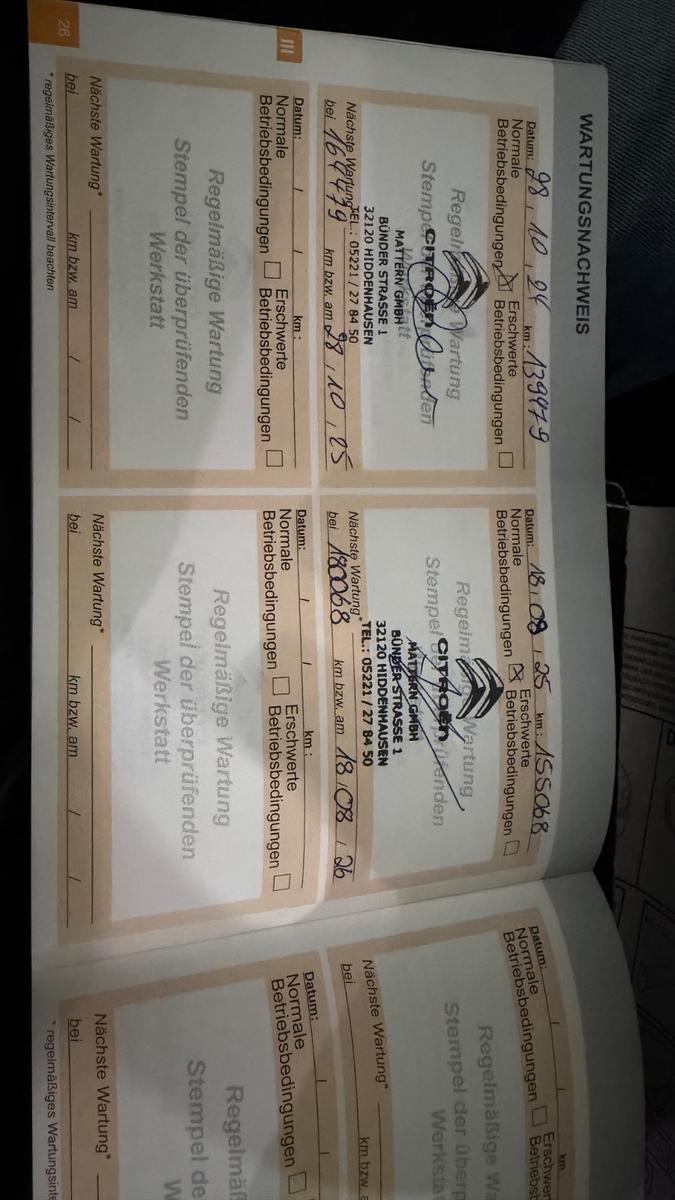 WARTUNGSNACHWEIS
Datum: 28 / 10 / 24 km: 139479
Normale Betriebsbedingungen ☒ Erschwerte Betriebsbedingungen ☐
Regelmäßige Wartung
Stempel der überprüfenden
Werkstatt
CITROËN
MATTERN GMBH
BÜNDER STRASSE 1
32120 HIDDENHAUSEN
TEL.: 05221 / 27 84 50
Nächste Wartung*
bei 164479 km bzw. am 28 / 10 / 25
Datum: 18 / 08 / 25 km: 155068
Normale Betriebsbedingungen ☒ Erschwerte Betriebsbedingungen ☐
Regelmäßige Wartung
Stempel der überprüfenden
CITROËN
MATTERN GMBH
BÜNDER STRASSE 1
32120 HIDDENHAUSEN
TEL.: 05221 / 27 84 50
Nächste Wartung*
bei 180068 km bzw. am 18 / 08 / 26
III
Datum: / / km:
Normale Betriebsbedingungen ☐ Erschwerte Betriebsbedingungen ☐
Regelmäßige Wartung
Stempel der überprüfenden
Werkstatt
Nächste Wartung*
bei km bzw. am / /
Datum: / / km:
Normale Betriebsbedingungen ☐ Erschwerte Betriebsbedingungen ☐
Regelmäßige Wartung
Stempel der überprüfenden
Werkstatt
Nächste Wartung*
bei km bzw. am / /
26
* regelmäßiges Wartungsintervall beachten
Datum: / / km
Normale Betriebsbedingungen ☐ Erschwer
Betriebsb
Regelmäßige Wa
Stempel der über
Werksta
Nächste Wartung*
bei km bzw. a
Datum: /
Normale Betriebsbedingungen ☐
Regelmäß
Stempel de
W
Nächste Wartung*
bei
* regelmäßiges Wartungsinte